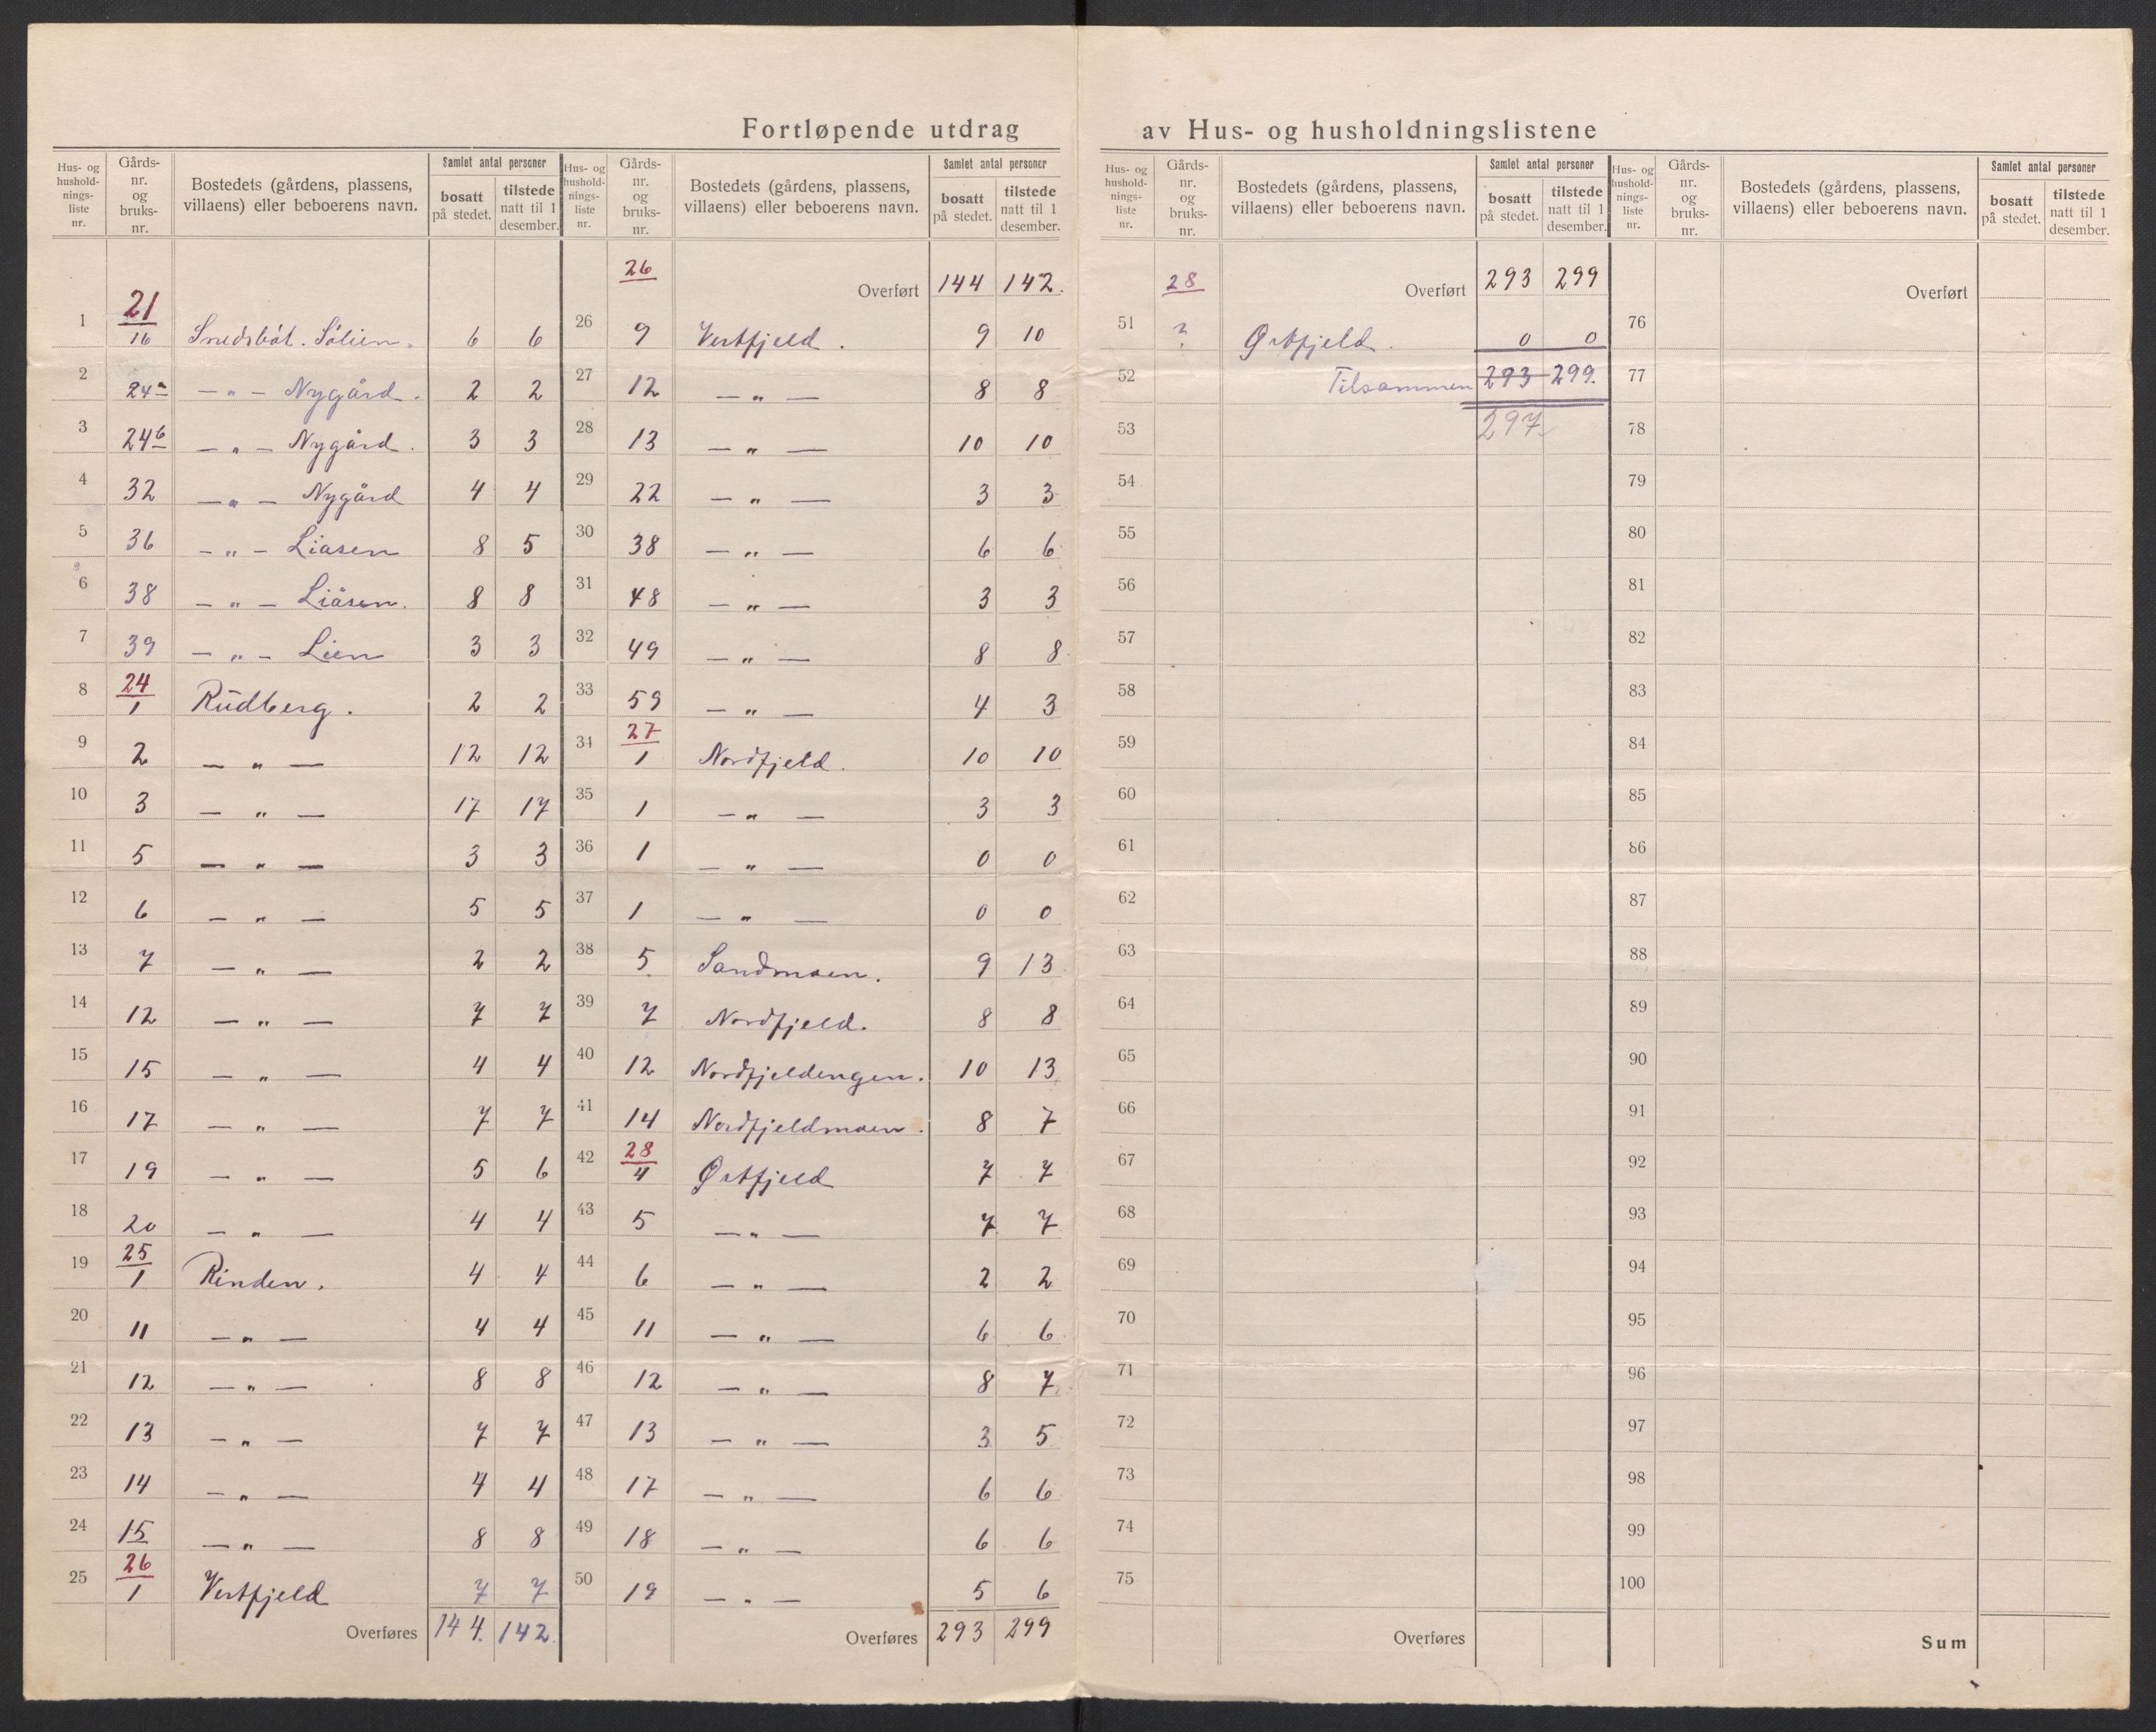 Fortløpende utdrag av Hus- og husholdningslistene
Hus- og husholdnings-liste nr. | Gårds-nr. og bruks-nr. | Bostedets (gårdens, plassens, villaens) eller beboerens navn. | Samlet antal personer bosatt på stedet. | tilstede natt til 1 desember.
21
1 | 16 | Snedsbøl. Sölien. | 6 | 6
2 | 24a | — „ — Nygård. | 2 | 2
3 | 24b | — „ — Nygård. | 3 | 3
4 | 32 | — „ — Nygård | 4 | 4
5 | 36 | — „ — Liasen | 8 | 5
6 | 38 | — „ — Liåsen. | 8 | 8
7 | 39 | — „ — Lien | 3 | 3
8 | 24/1 | Rudberg. | 2 | 2
9 | 2 | — „ — | 12 | 12
10 | 3 | — „ — | 17 | 17
11 | 5 | — „ — | 3 | 3
12 | 6 | — „ — | 5 | 5
13 | 7 | — „ — | 2 | 2
14 | 12 | — „ — | 7 | 7
15 | 15 | — „ — | 4 | 4
16 | 17 | — „ — | 7 | 7
17 | 19 | — „ — | 5 | 6
18 | 20 | — „ — | 4 | 4
19 | 25/1 | Rinden. | 4 | 4
20 | 11 | — „ — | 4 | 4
21 | 12 | — „ — | 8 | 8
22 | 13 | — „ — | 7 | 7
23 | 14 | — „ — | 4 | 4
24 | 15 | — „ — | 8 | 8
25 | 26/1 | Vestfjeld | 7 | 7
Overføres | 144. | 142.
Hus- og husholdnings-liste nr. | Gårds-nr. og bruks-nr. | Bostedets (gårdens, plassens, villaens) eller beboerens navn. | Samlet antal personer bosatt på stedet. | tilstede natt til 1 desember.
26 | Overført | 144 | 142.
26 | 9 | Vestfjeld. | 9 | 10
27 | 12 | — „ — | 8 | 8
28 | 13 | — „ — | 10 | 10
29 | 22 | — „ — | 3 | 3
30 | 38 | — „ — | 6 | 6
31 | 48 | — „ — | 3 | 3
32 | 49 | — „ — | 8 | 8
33 | 59 | — „ — | 4 | 3
34 | 27/1 | Nordfjeld. | 10 | 10
35 | 1 | — „ — | 3 | 3
36 | 1 | — „ — | 0 | 0
37 | 1 | — „ — | 0 | 0
38 | 5 | Sandmoen. | 9 | 13
39 | 7 | Nordfjeld. | 8 | 8
40 | 12 | Nordfjeldengen. | 10 | 13
41 | 14 | Nordfjeldmoen. | 8 | 7
42 | 28/4 | Østfjeld | 7 | 7
43 | 5 | — „ — | 7 | 7
44 | 6 | — „ — | 2 | 2
45 | 11 | — „ — | 6 | 6
46 | 12 | — „ — | 8 | 7
47 | 13 | — „ — | 3 | 5
48 | 17 | — „ — | 6 | 6
49 | 18 | — „ — | 6 | 6
50 | 19 | — „ — | 5 | 6
Overføres | 293 | 299
Hus- og husholdnings-liste nr. | Gårds-nr. og bruks-nr. | Bostedets (gårdens, plassens, villaens) eller beboerens navn. | Samlet antal personer bosatt på stedet. | tilstede natt til 1 desember.
28 | Overført | 293 | 299
51 | ? | Østfjeld. | 0 | 0
52 | Tilsammen | 293 | 299.
53 | 297
54
55
56
57
58
59
60
61
62
63
64
65
66
67
68
69
70
71
72
73
74
75
Overføres
Hus- og husholdnings-liste nr. | Gårds-nr. og bruks-nr. | Bostedets (gårdens, plassens, villaens) eller beboerens navn. | Samlet antal personer bosatt på stedet. | tilstede natt til 1 desember.
Overført
76
77
78
79
80
81
82
83
84
85
86
87
88
89
90
91
92
93
94
95
96
97
98
99
100
Sum